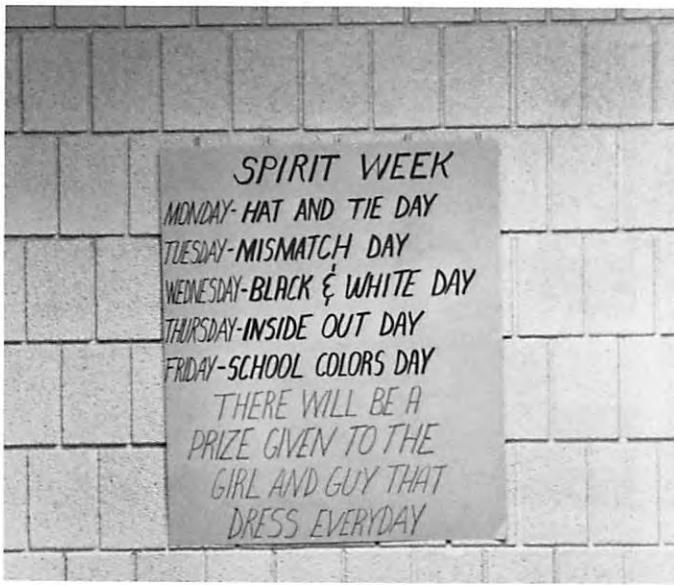 SPIRIT WEEK
MONDAY-HAT AND TIE DAY
TUESDAY-MISMATCH DAY
WEDNESDAY-BLACK & WHITE DAY
THURSDAY-INSIDE OUT DAY
FRIDAY-SCHOOL COLORS DAY
THERE WILL BE A
PRIZE GIVEN TO THE
GIRL AND GUY THAT
DRESS EVERYDAY